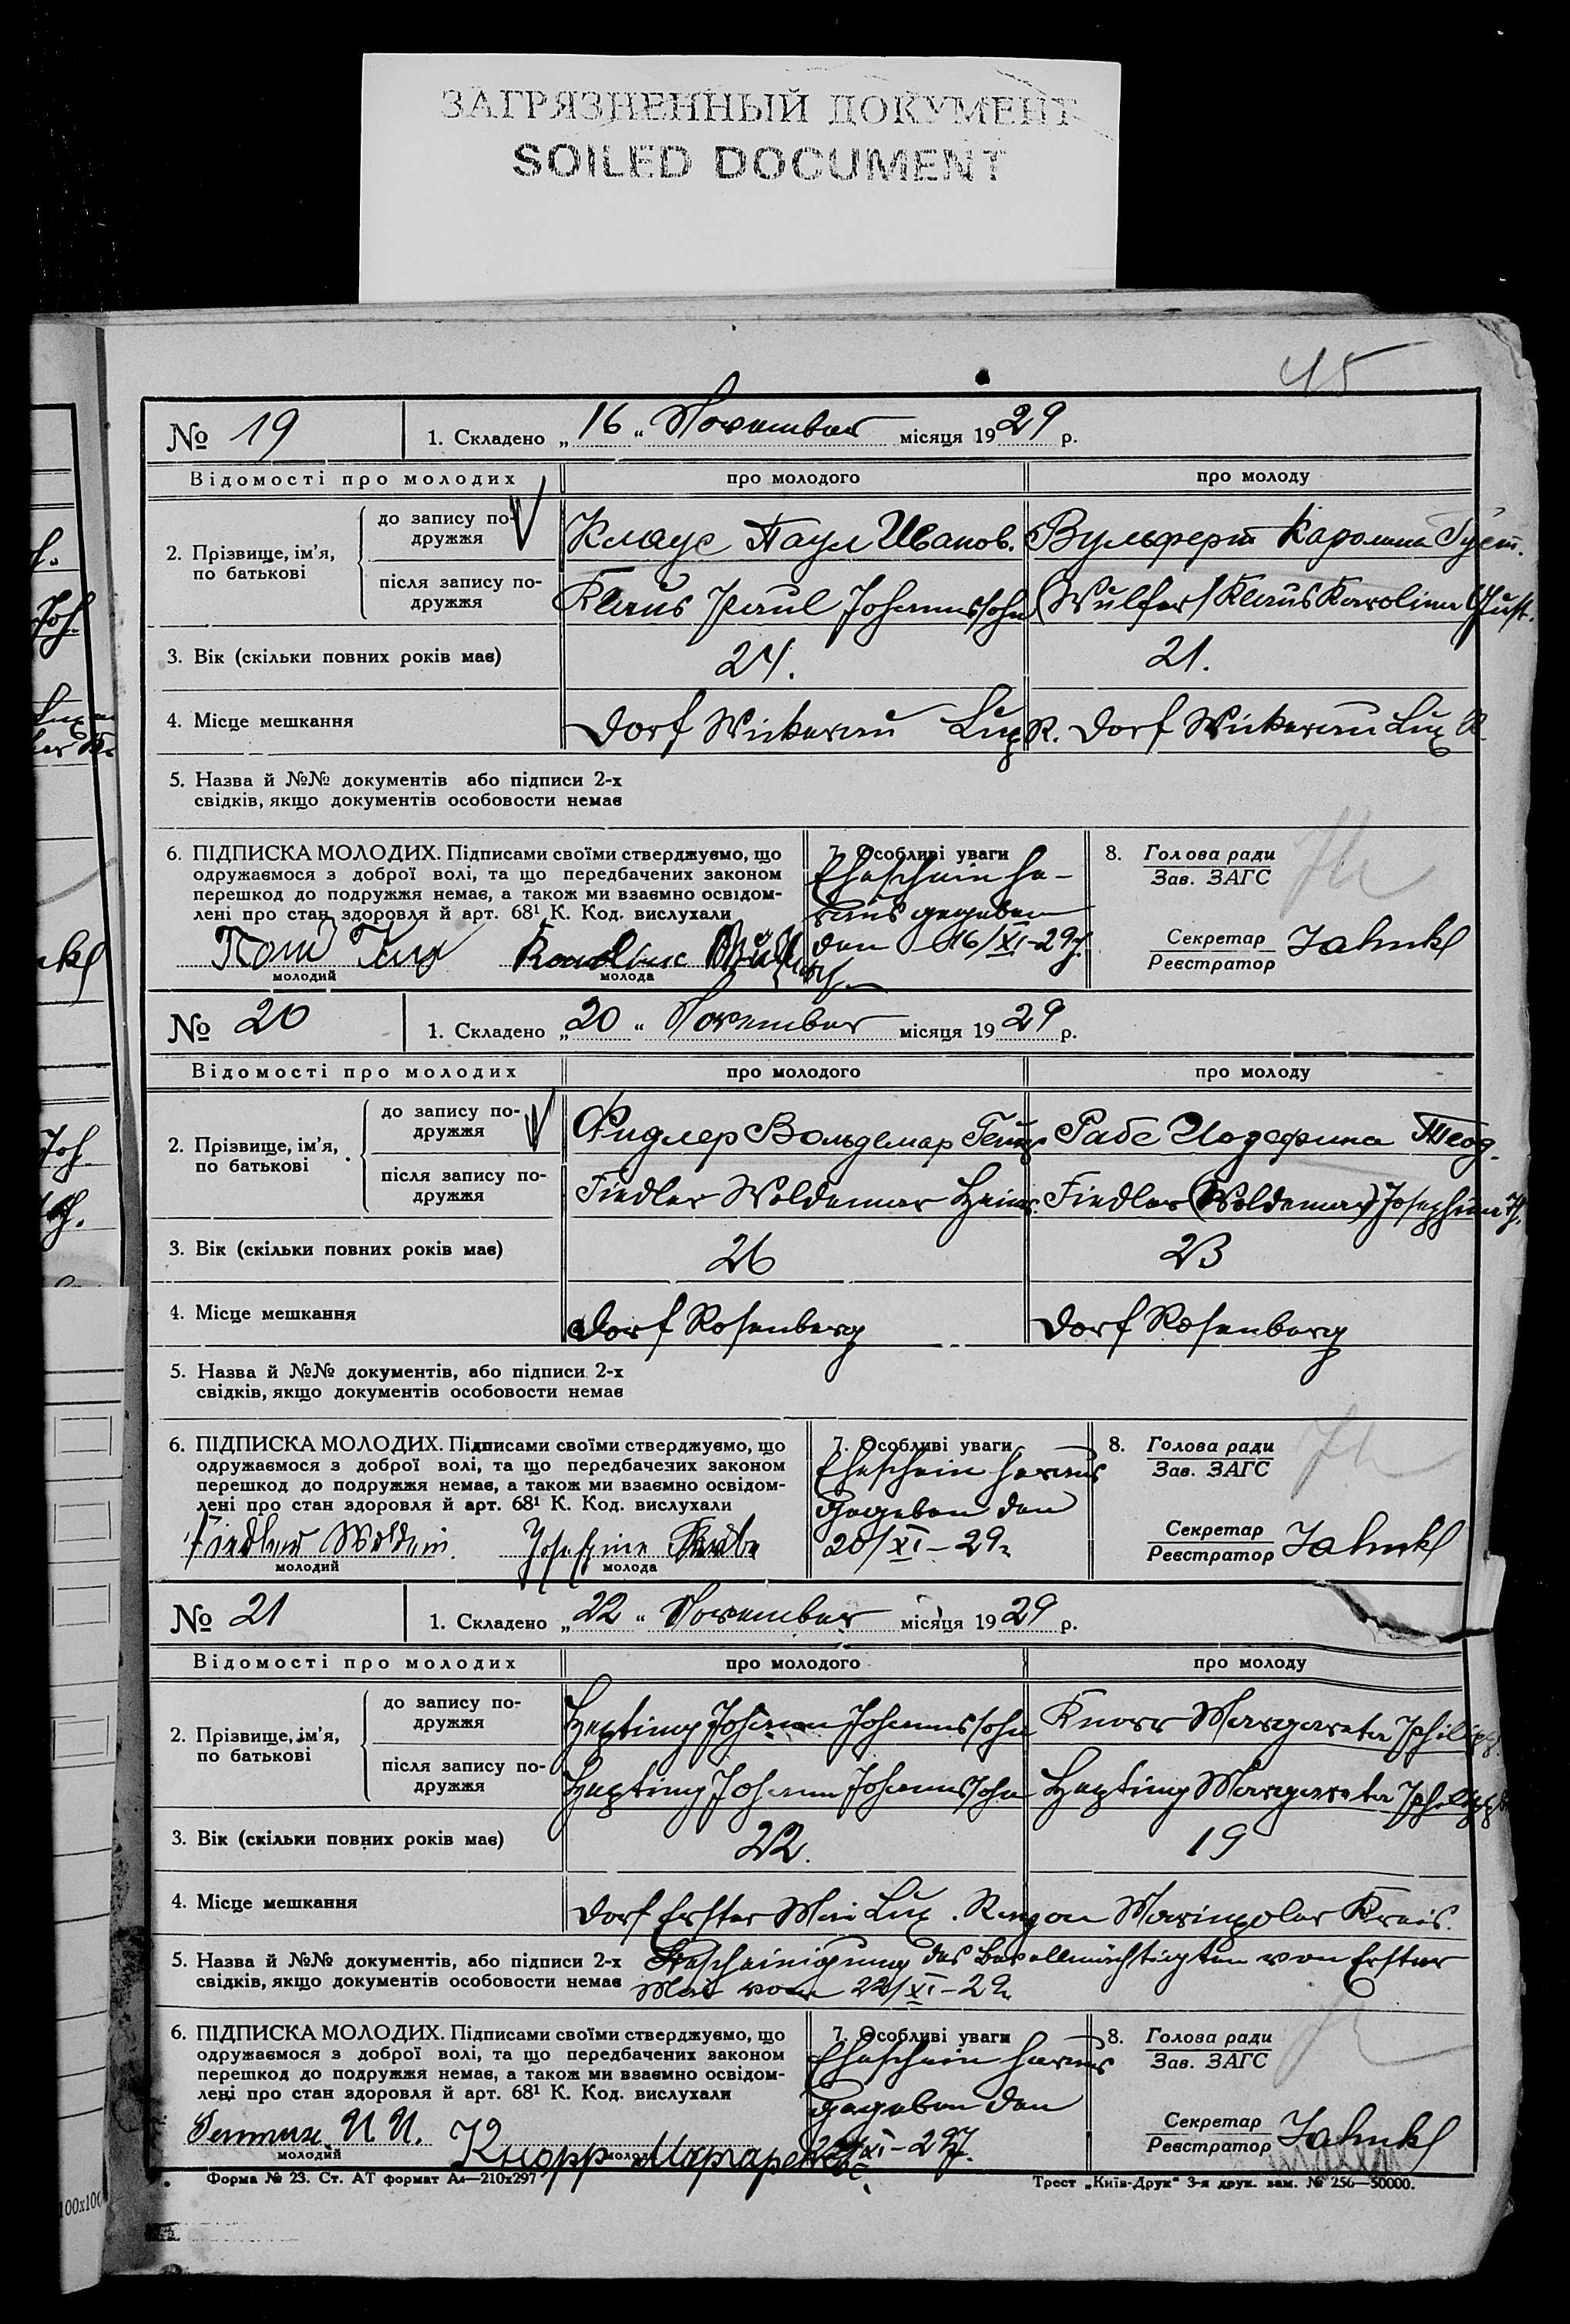 ЗАГРЯЗНЕННЫЙ ДОКУМЕНТ
SOILED DOCUMENT
45
№ 19 1. Складено „16“ November місяця 1929 р.
Відомості про молодих про молодого про молоду
2. Прізвище, ім’я, по батькові
до запису подружжя Клаус Паул Иванов. Вульферт Каролина Густ.
після запису подружжя Klaus Paul Johannssohn (Wulfert) Klaus Karolina Gust.
3. Вік (скільки повних років має) 24. 21.
4. Місце мешкання Dorf Wickerau Lux R. Dorf Wickerau Lux R.
5. Назва й №№ документів або підписи 2-х
свідків, якщо документів особовости немає
6. ПІДПИСКА МОЛОДИХ. Підписами своїми стверджуємо, що
одружаємося з доброї волі, та що передбачених законом
перешкод до подружжя немає, а також ми взаємно освідом-
лені про стан здоровля й арт. 68¹ К. Код. вислухали
молодий молода
7. Особливі уваги
Eheschein he-
raus gegeben
den 16/XI-29 J.
8. Голова ради
Зав. ЗАГС
Секретар
Реєстратор
№ 20 1. Складено „20“ November місяця 1929 р.
Відомості про молодих про молодого про молоду
2. Прізвище, ім’я, по батькові
до запису подружжя Фидлер Вольдемар Рабе Иозефина Теод.
після запису подружжя Fiedler Woldemar Heinr. Fiedler (Woldemar) Josephina Th.
3. Вік (скільки повних років має) 26 23
4. Місце мешкання Dorf Rosenberg Dorf Rosenberg
5. Назва й №№ документів, або підписи 2-х
свідків, якщо документів особовости немає
6. ПІДПИСКА МОЛОДИХ. Підписами своїми стверджуємо, що
одружаємося з доброї волі, та що передбачених законом
перешкод до подружжя немає, а також ми взаємно освідом-
лені про стан здоровля й арт. 68¹ К. Код. вислухали
Fiedler Woldem. Josefine Raabe
молодий молода
7. Особливі уваги
Eheschein heraus
gegeben den
20/XI-29
8. Голова ради
Зав. ЗАГС
Секретар
Реєстратор
№ 21 1. Складено „22“ November місяця 1929 р.
Відомості про молодих про молодого про молоду
2. Прізвище, ім’я, по батькові
до запису подружжя Johann Johannssohn Knorr Margareta Philipp
після запису подружжя Johann Johannssohn Margareta Philipp
3. Вік (скільки повних років має) 22. 19
4. Місце мешкання Dorf Erster Mai Lux. Rayon Mariupoler Kreis.
5. Назва й №№ документів, або підписи 2-х Bescheinigung des Bevollmächtigten von Erster
свідків, якщо документів особовости немає Mai vom 22/XI-29
6. ПІДПИСКА МОЛОДИХ. Підписами своїми стверджуємо, що
одружаємося з доброї волі, та що передбачених законом
перешкод до подружжя немає, а також ми взаємно освідом-
лені про стан здоровля й арт. 68¹ К. Код. вислухали
И. И. Кнорр Маргарета
молодий молода
7. Особливі уваги
Eheschein heraus
gegeben den
22/XI-29 J.
8. Голова ради
Зав. ЗАГС
Секретар
Реєстратор
Форма № 23. Ст. АТ формат А4—210x297 Трест „Київ-Друк“ 3-я друк. зам. № 256—50000.
100x100